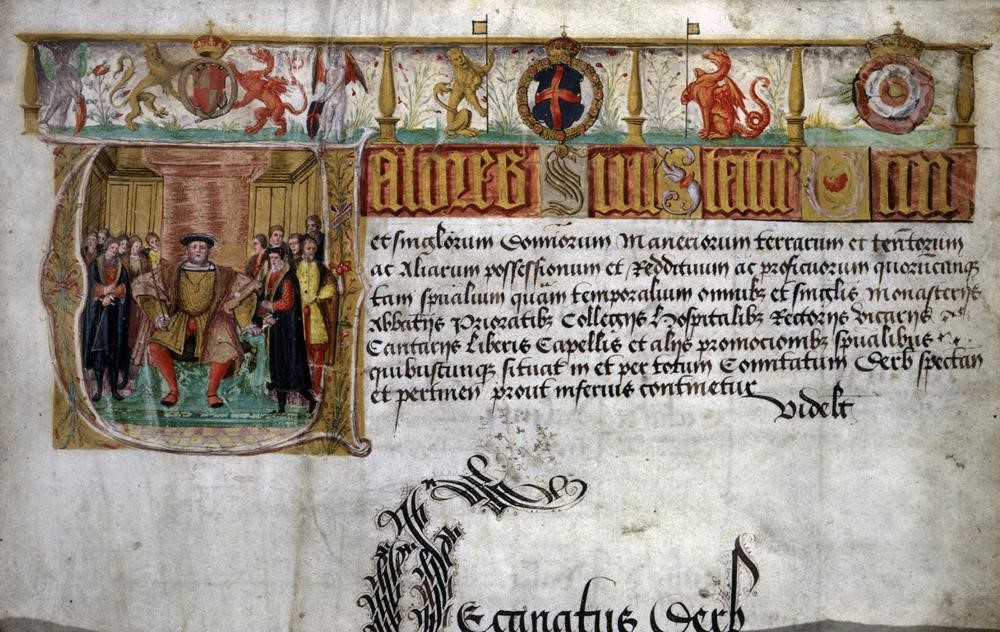 Valores Summe siue taxatōnes omniū
et singlorum Domiorum Maneriorum terrarum et tentorum
ac Aliarum possessionum et Reddituum ac proficuorum quorumcunq
tam spualium quam temporalium omnibz et singlis Monasterijs
Abbatijs Prioratibz Collegijs Hospitalibz Rectorijs Vicarijs
Cantarijs Liberis Capellis et alijs promocionibz spualibus
quibuscunqz situat in et per totum Comitatum Derb spectan
et pertinen prout inferius continetur
videlt
Decanatus Derb